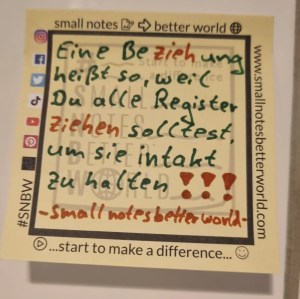 small notes better world
Eine Beziehung
heißt so, weil
Du alle Register
ziehen solltest,
um sie intakt
zu halten !!!
-smallnotesbetterworld-
...start to make a difference...
#SNBW
www.smallnotesbetterworld.com